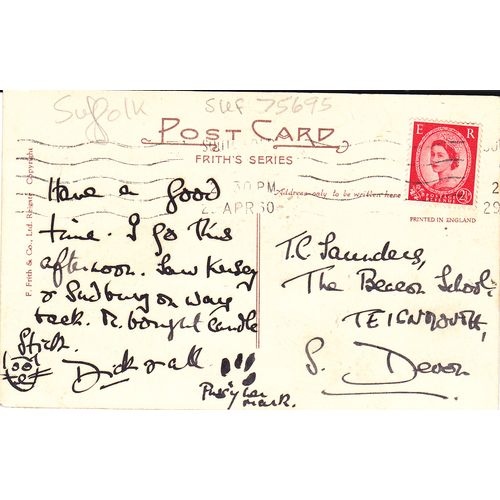 Suffolk
SUF 75695
POST CARD
FRITH'S SERIES
E R
POSTAGE REVENUE
2½
30 PM
2 APR 60
29
Address only to be written here
PRINTED IN ENGLAND
F. Frith & Co., Ltd. Reigate Copyright
Have a good
time. I go this
afternoon. Saw Kersey
& Sudbury on way
back. M. bought candle
stick.
Dick & all
mark.
T.C. Saunders,
The Beacon School,
TEIGNMOUTH,
S. Devon